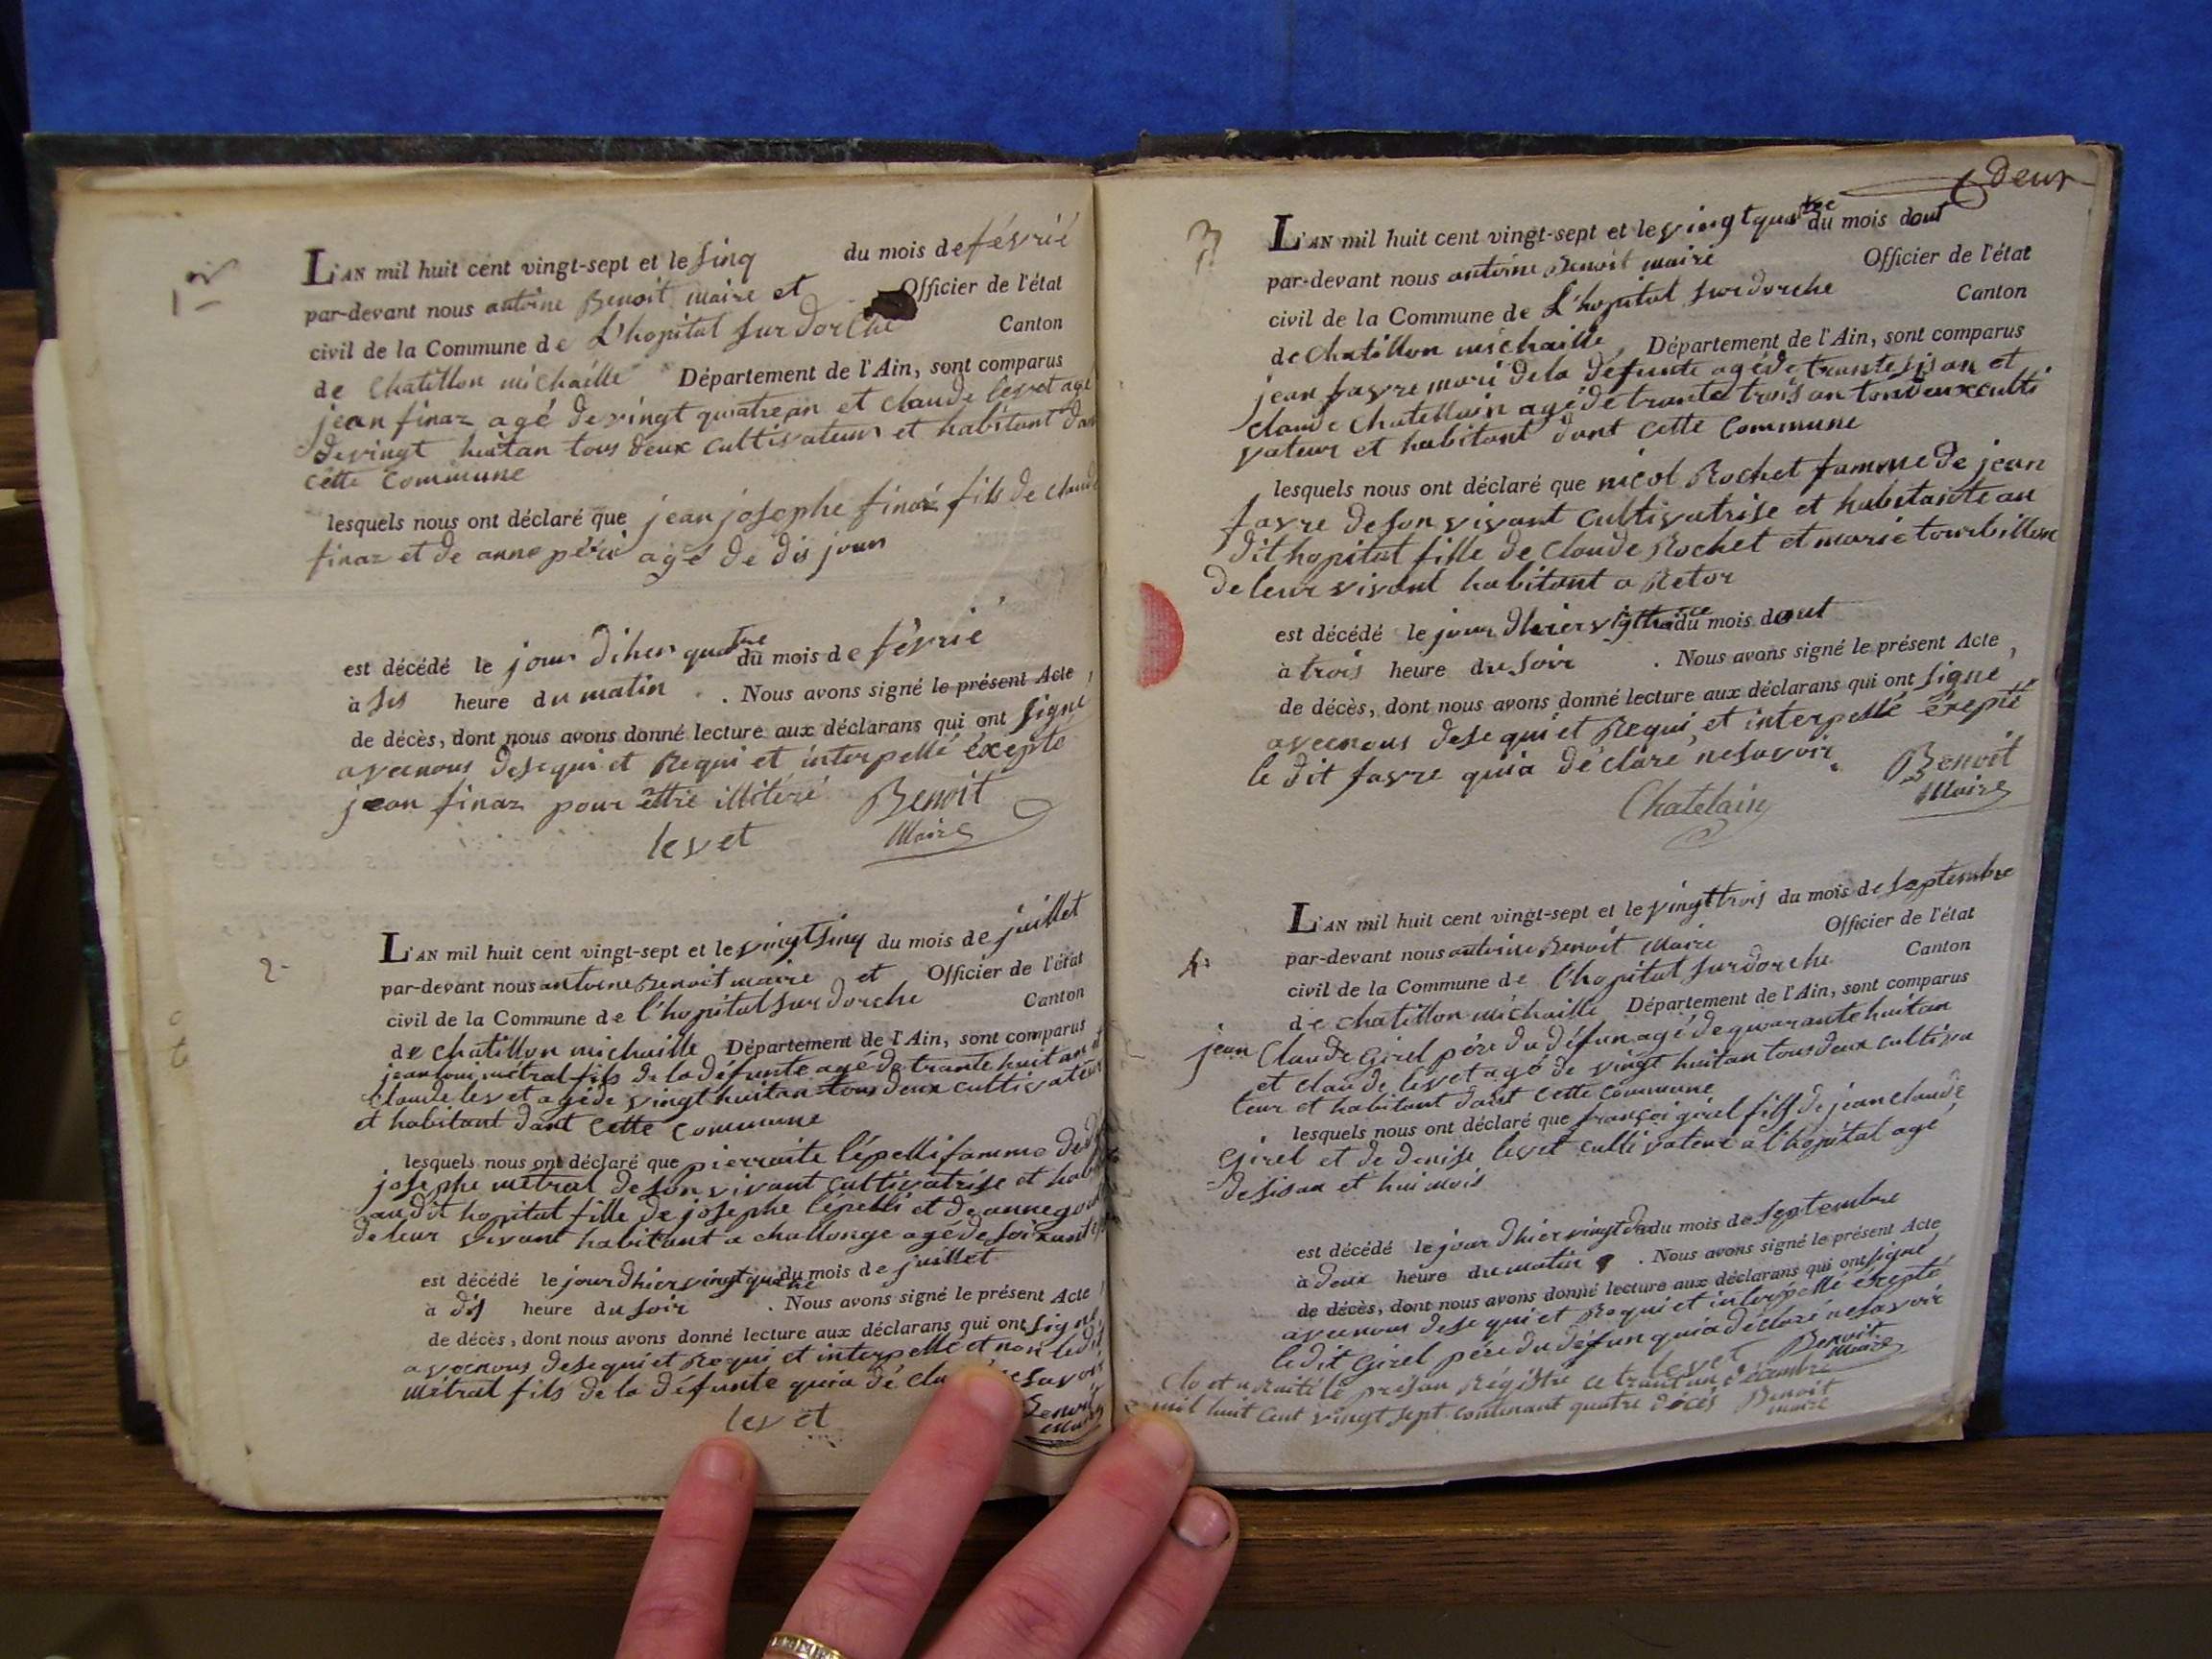 1er
L'AN mil huit cent vingt-sept et le sinq du mois de févrié
par-devant nous antoine Benoit maire et Officier de l'état
civil de la Commune de L'hopital sur dorche Canton
de Chatillon michaille Département de l'Ain, sont comparus
jean finaz agé de vingt quatre an et claude levet agé
de vingt huitan tous deux cultivateur et habitant dan
cette commune
lesquels nous ont déclaré que jean josephe finaz fils de claude
finaz et de anne agé de dis jour
est décédé le jour diher quatre du mois de févrié
à sis heure du matin . Nous avons signé le présent Acte
de décès, dont nous avons donné lecture aux déclarans qui ont signé
avecnous desequi et Requi et interpellé éxepté
jean finaz pour ettre illiteré Benoit
levet Maire
2-
L'AN mil huit cent vingt-sept et le vingtsinq du mois de juillet
par-devant nous antoine Benoit maire et Officier de l'état
civil de la Commune de l'hopital sur dorche Canton
de chatillon michaille Département de l'Ain, sont comparus
jean loui métral fils de la défunte agé de trante huit an et
Claude levet agé de vingt huitan tous deux cultivateur
et habitant dant cette commune
lesquels nous ont déclaré que pierraite l'épelli famme de
josephe métral de son vivant cultivatrise et
audit hopital fille de josephe l'épelli et de anne
de leur vivant habitant a challonge agé de soixante
est décédé le jour dhier vingt quatre du mois de juillet
à dis heure du soir . Nous avons signé le présent Acte
de décès, dont nous avons donné lecture aux déclarans qui ont signé
avecnous desequi et Requi et interpellé et non ledit
métral fils de la défunte quia dé savoir
levet Benoit
Maire
deux
3
L'AN mil huit cent vingt-sept et le vingt quatre du mois dout
par-devant nous antoine Benoit maire Officier de l'état
civil de la Commune de L'hopital sur dorche Canton
de Chatillon michaille, Département de l'Ain, sont comparus
jean favre mari de la défunte agé de trante sis an et
claude Chatellain agé de trante trois an tous deux culti
vateur et habitant dant cette commune
lesquels nous ont déclaré que nicol Rochet famme de jean
favre de son vivant cultivatrise et habitante au
dit hopital fille de claude Rochet et marie tourbillon
de leur vivant habitant a Retor
est décédé le jour dhier du mois dout
à trois heure du soir . Nous avons signé le présent Acte
de décès, dont nous avons donné lecture aux déclarans qui ont signé
avecnous desequi et Requi, et interpellé éxepté
le dit favre quia déclaré nesavoir Benoit
Chatelain Maire
4
L'AN mil huit cent vingt-sept et le vingttrois du mois de septembre
par-devant nous antoine Benoit Maire Officier de l'état
civil de la Commune de l'hopital sur dorche Canton
de chatillon michaille Département de l'Ain, sont comparus
jean Claude girel pére du défun agé de quarante huitan
et claude levet agé de vingt huitan tous deux cultiva
teur et habitant dant cette commune
lesquels nous ont déclaré que françoi girel fils de jean claude
Girel et de denise levet cultivateur a l'hopital agé
de sisan et hui mois
est décédé le jour dhier vingt du mois de septembre
à deux heure du matin . Nous avons signé le présent Acte
de décès, dont nous avons donné lecture aux déclarans qui ont signé
avecnous desequi et Requi et interpellé éxepté
ledit girel pére du défun quia déclaré nesavoir
levet Benoit
Maire
Clo et le présan Régistre ce trantun décambre
mil huit cent vingt sept contenant quatre décés Benoit
maire